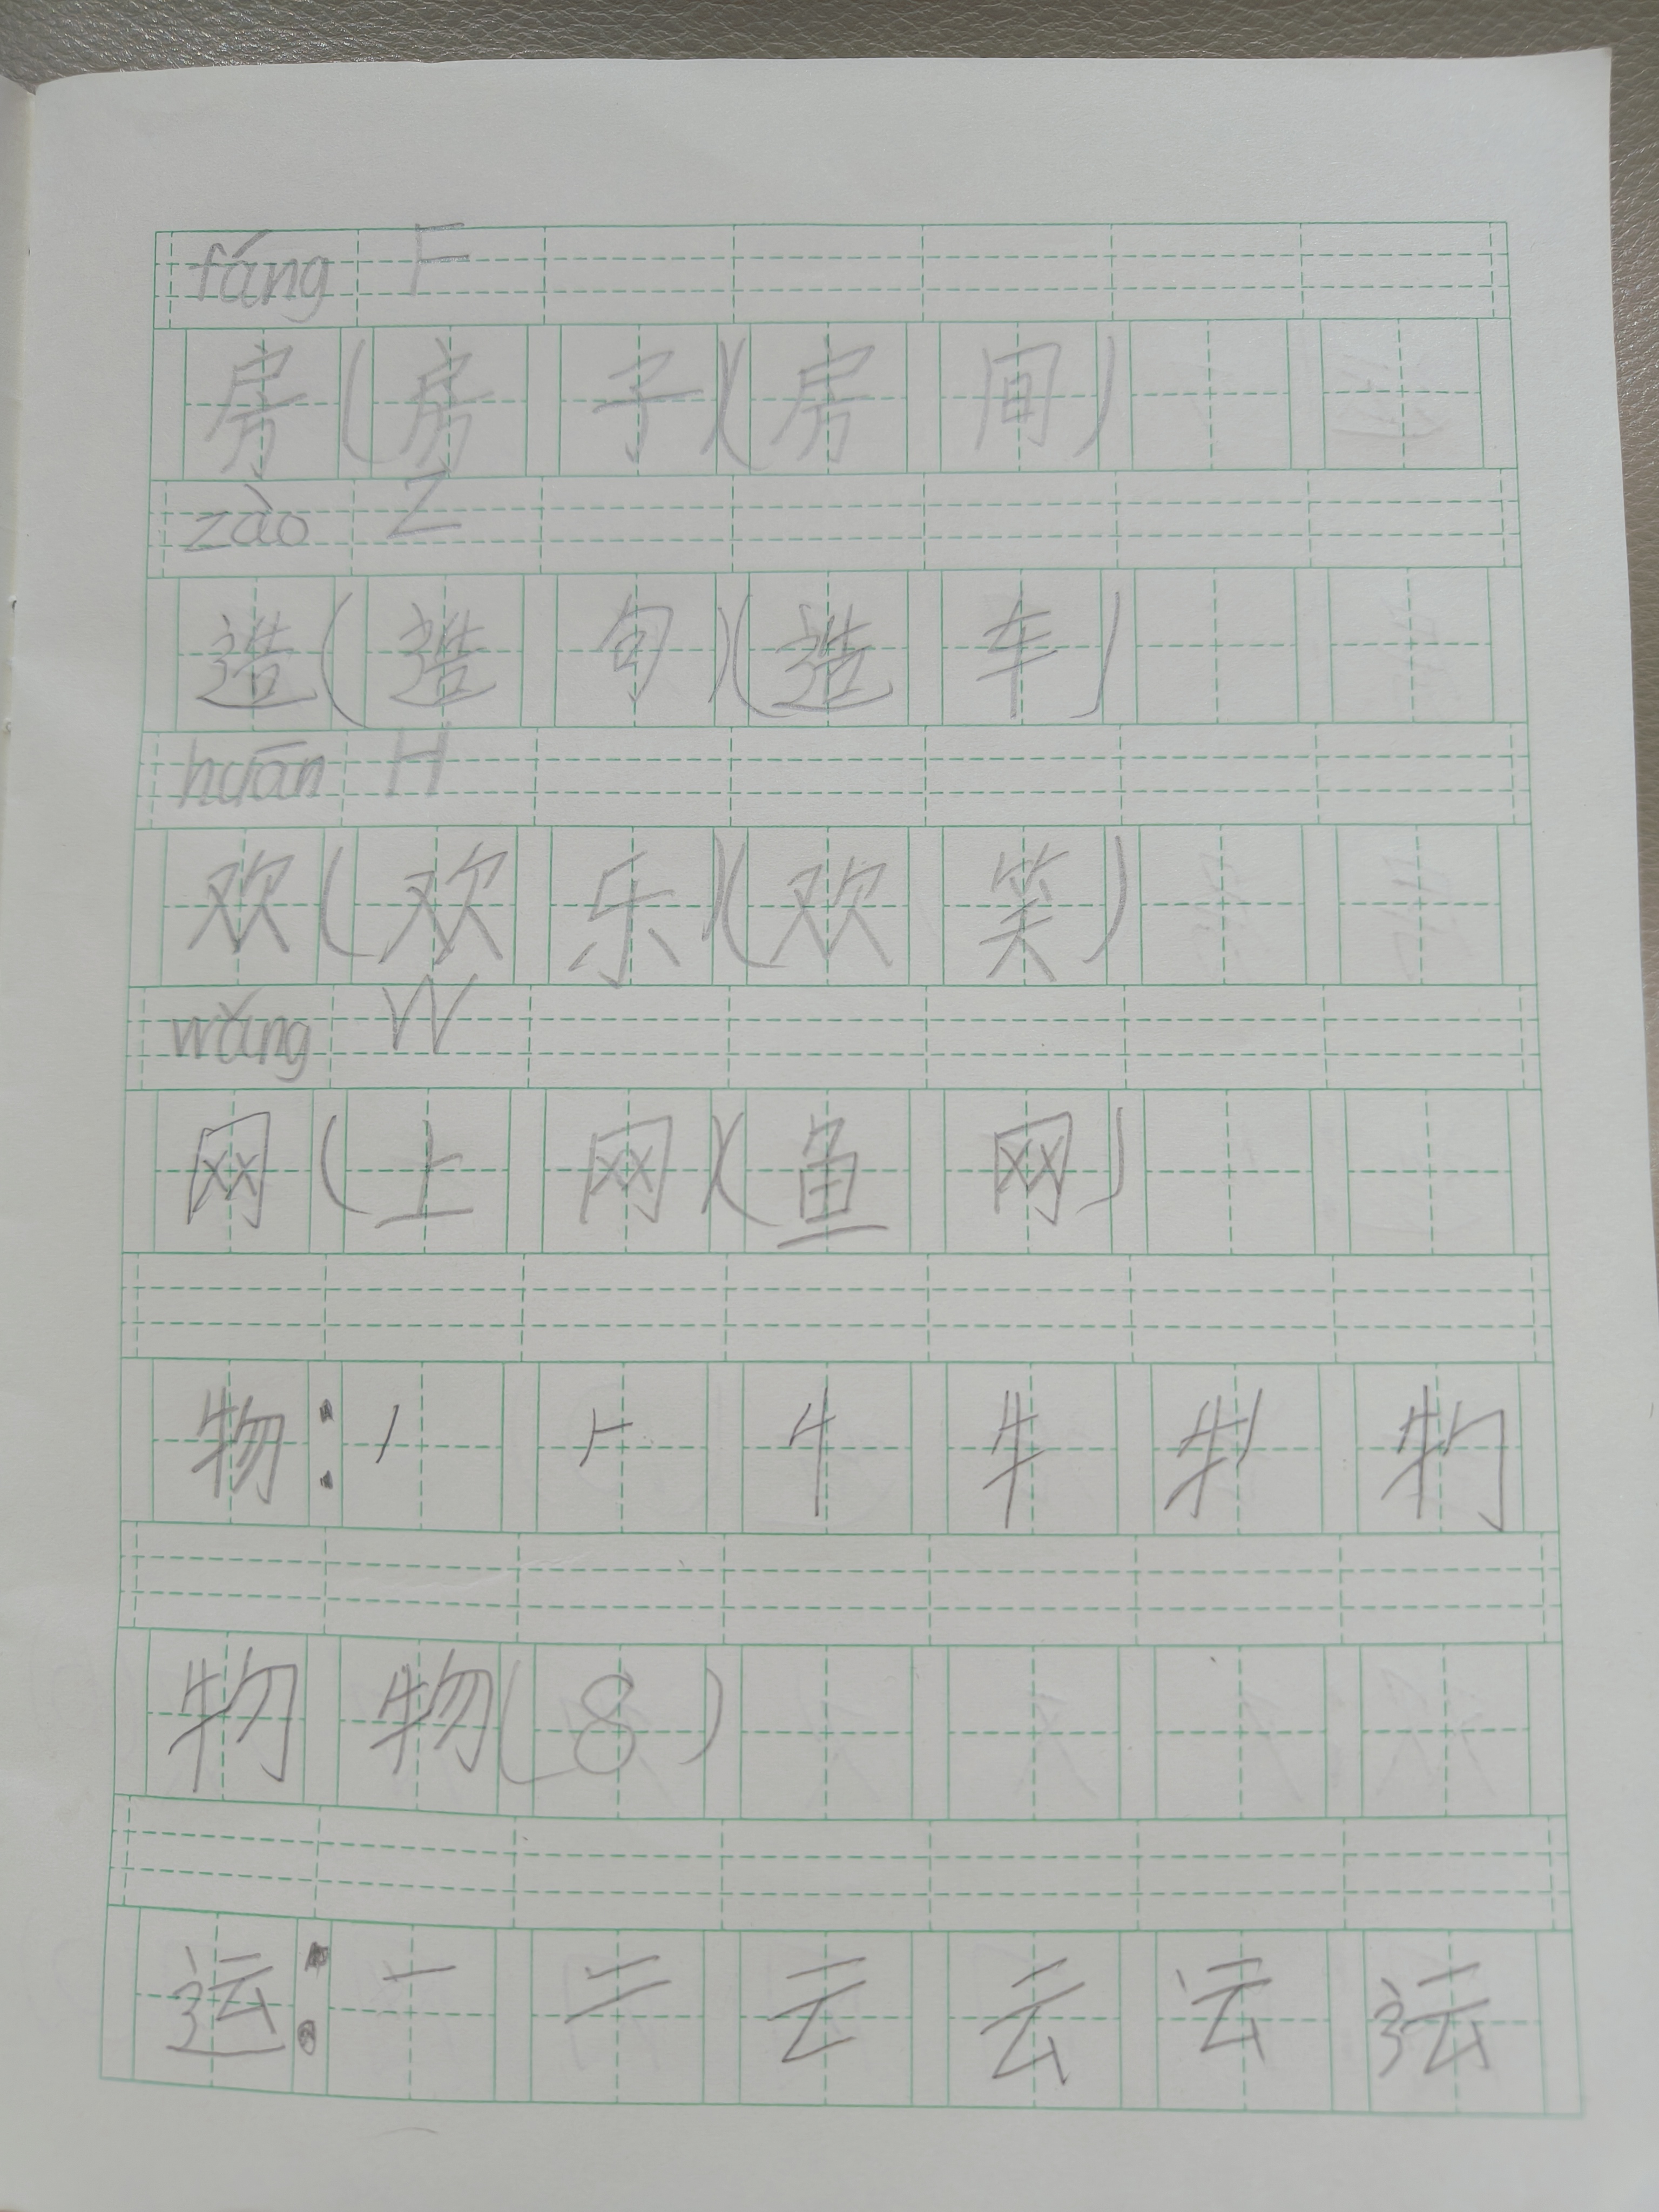 fáng F
房(房子)(房间)
zào Z
造(造句)(造车)
huān H
欢(欢乐)(欢笑)
wǎng W
网(上网)(鱼网)
物:丿 𠂉 牛
物 物(8)
运:一 二 云 云